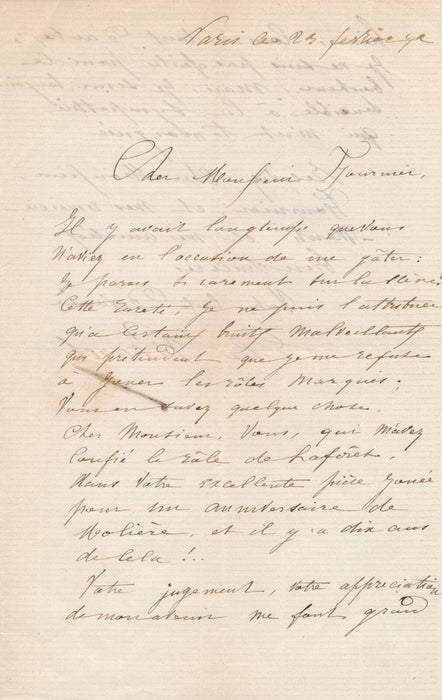 Paris ce 23 février 72
Cher Monsieur Fournier,
Il y avait longtemps que vous
n'aviez eu l'occasion de me gâter:
Je parais si rarement sur la scène!
Cette rareté, je ne puis l'attribuer
qu'à certains bruits malveillants
qui prétendent que je me refuse
à jouer les rôles marqués.
Vous en savez quelque chose,
Cher Monsieur, Vous, qui m'avez
confié le rôle de Laforêt,
dans votre excellente pièce jouée
pour un anniversaire de
Molière, et il y a dix ans
de cela!..
Votre jugement, votre appréciation
de mon me font grand